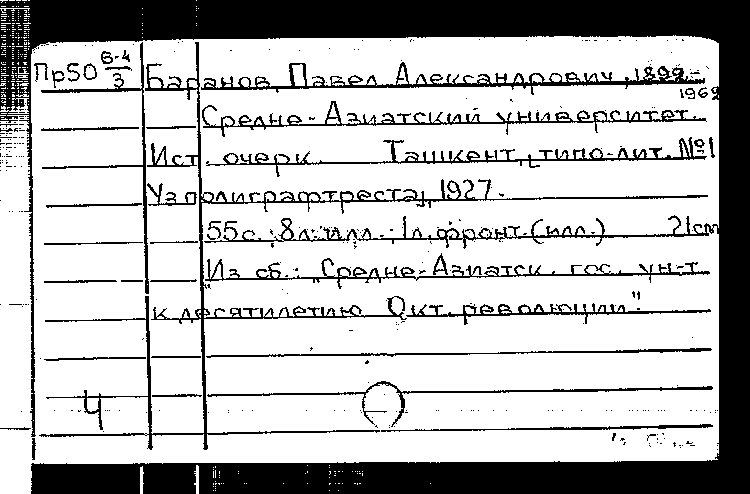 Пр50 В-4/3 Баранов, Павел Александрович, 1892-
1962
Средне-Азиатский университет.
Ист. очерк. Ташкент, [типо-лит. №1
Узполиграфтреста], 1927.
55с.; 8л. илл.; 1л. фронт. (илл.) 21см
"Из сб.: "Средне-Азиатск. гос. ун-т
к десятилетию Окт. революции".
4